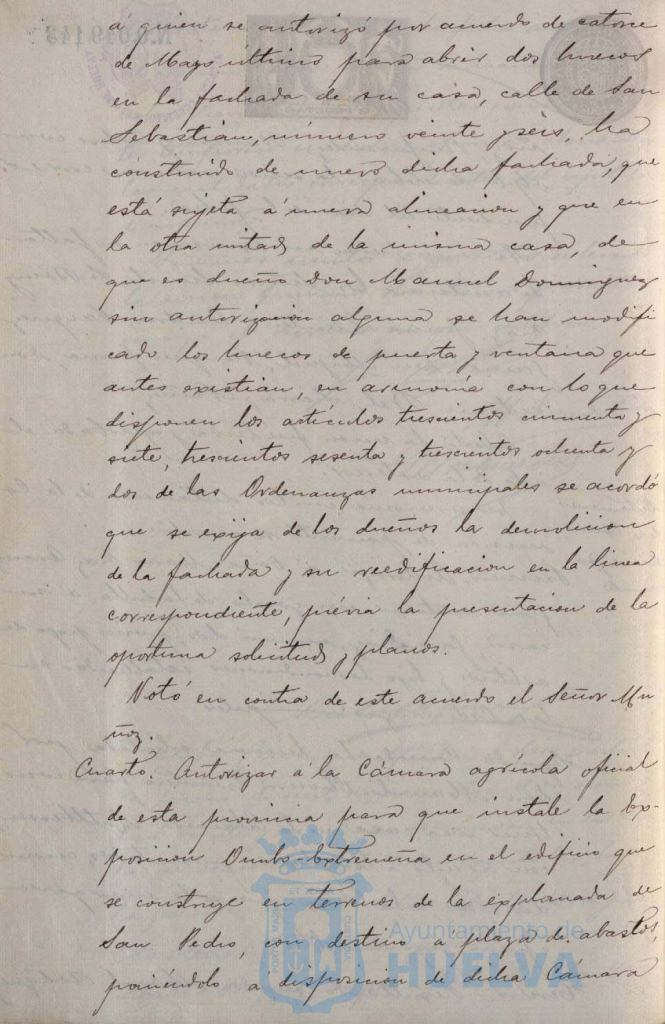 á quien se autorizó por acuerdo de catorce
de Mayo último para abrir dos huecos
en la fachada de su casa, calle de San
Sebastián, número veinte y seis, ha
construido de nuevo dicha fachada, que
está sujeta á nueva alineacion y que en
la otra mitad de la misma casa, de
que es dueño Don Manuel Dominguez
sin autorizacion alguna se han modifi
cado los huecos de puerta y ventana que
antes existian, en armonía con lo que
disponen los artículos trescientos cincuenta y
siete, trescientos sesenta y trescientos ochenta y
dos de las Ordenanzas municipales se acordó
que se exija de los dueños la demolicion
de la fachada y su reedificacion en la linea
correspondiente, prévia la presentacion de la
oportuna solicitud y planos.
Votó en contra de este acuerdo el Señor Mu
ñoz.
Cuarto. Autorizar á la Cámara agrícola oficial
de esta provincia para que instale la Ex-
posicion Onubo-Extremeña en el edificio que
se construye en terrenos de la explanada de
San Pedro, con destino a plaza de abastos,
poniéndolo a disposicion de dicha Cámara
Ayuntamiento de
HUELVA